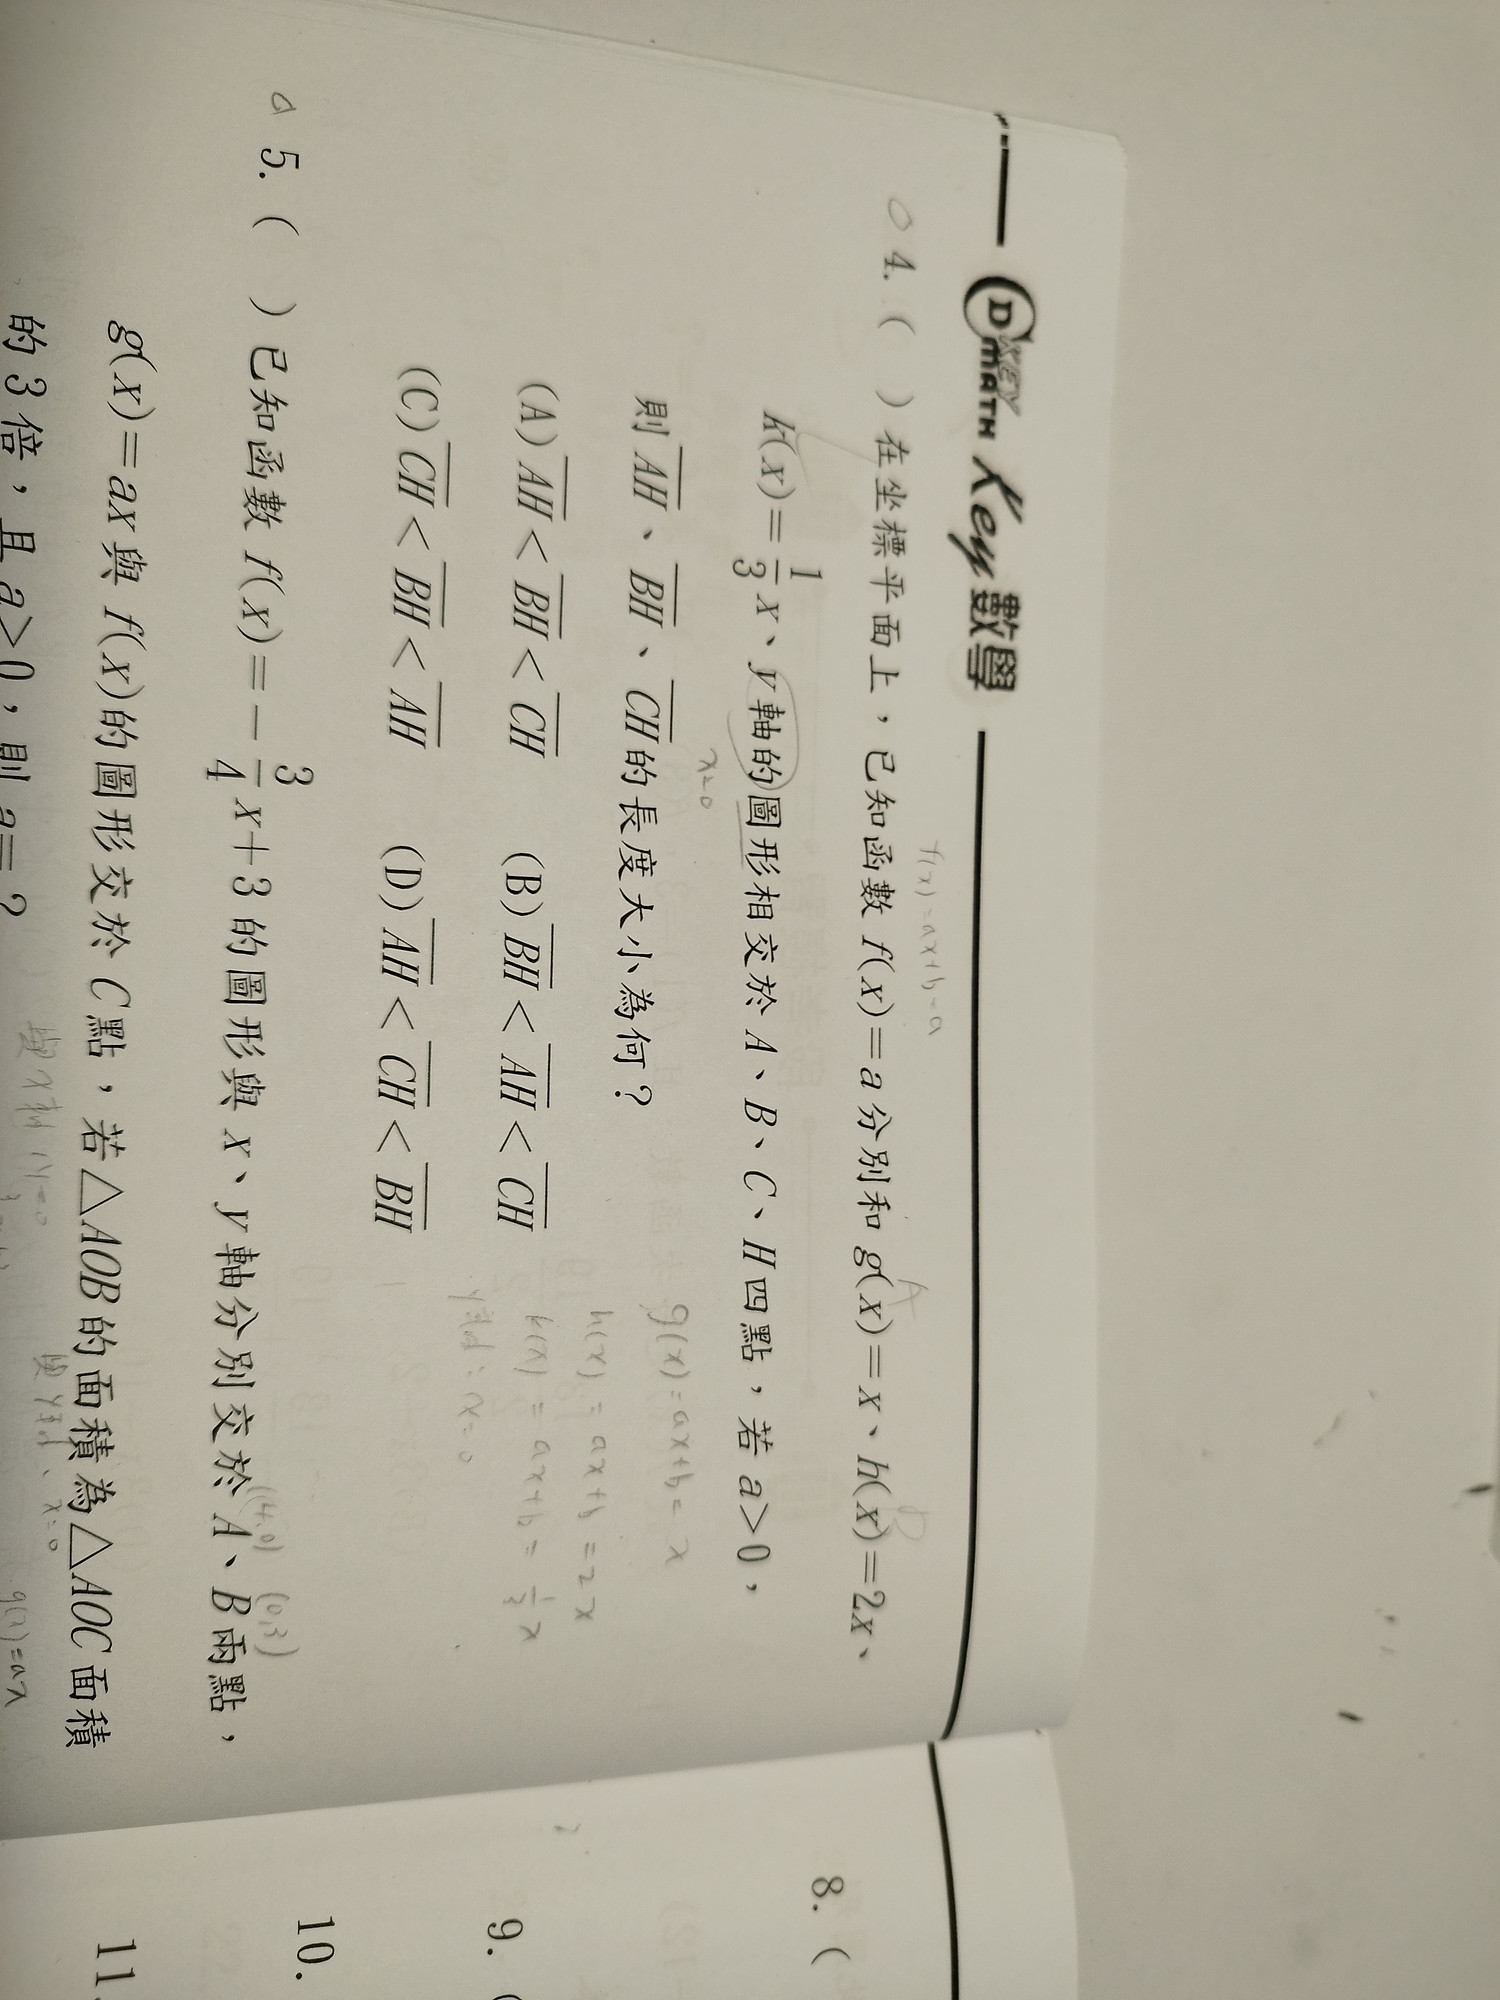 DKEY MATH Key 數學
f(x)=ax+b=a
4. (　) 在坐標平面上，已知函數 f(x)=a 分別和 g(x)=x、h(x)=2x、
k(x)=1/3x、y軸的圖形相交於 A、B、C、H四點，若 a>0，
x=0
則 AH、BH、CH的長度大小為何？
g(x)=ax+b=x
(A) AH<BH<CH　(B) BH<AH<CH
h(x)=ax+b=2x
k(x)=ax+b=1/3x
(C) CH<BH<AH　(D) AH<CH<BH
y軸：x=0
(4,0) (0,3)
5. (　) 已知函數 f(x)=－3/4x+3 的圖形與 x、y軸分別交於 A、B兩點，
g(x)=ax 與 f(x)的圖形交於 C點，若△AOB的面積為△AOC面積
與y軸、x=0
g(x)=ax
的 3 倍，且 a>0，則 a=？
8. (
9. (
10.
11.